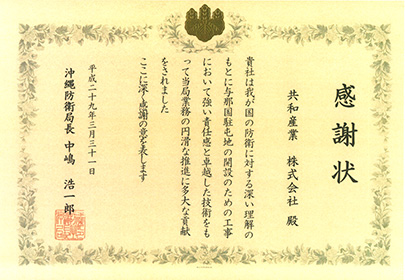 感謝状
共和産業 株式会社 殿
貴社は我が国の防衛に対する深い理解の
もとに与那国駐屯地の開設のための工事
において強い責任感と卓越した技術をも
って当局業務の円滑な推進に多大な貢献
をされました
ここに深く感謝の意を表します
平成二十九年三月三十一日
沖縄防衛局長 中嶋 浩一郎